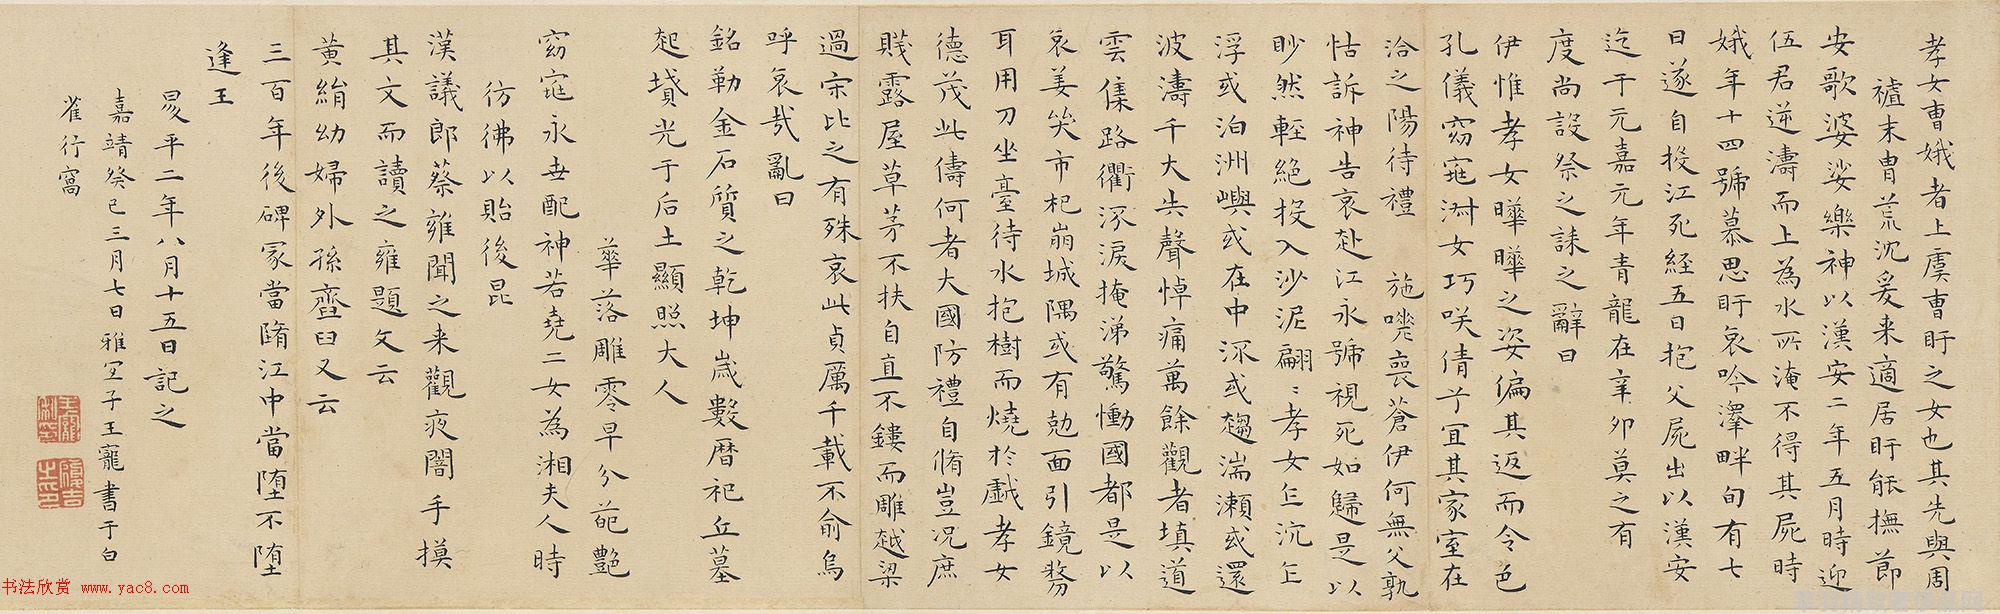 孝女曹娥者上虞曹盱之女也其先與周
禃末胄荒沉爰来適居盱能撫節
安歌婆娑樂神以漢安二年五月時迎
伍君逆濤而上為水所淹不得其屍時
娥年十四號慕思盱哀吟澤畔旬有七
日遂自投江死経五日抱父屍出以漢安
迄于元嘉元年青龍在辛卯莫之有
度尚設祭之誄之辭曰
伊惟孝女曄曄之姿偏其返而令色
孔儀窈窕淑女巧咲倩兮宜其家室在
洽之陽待禮 施嗟喪蒼伊何無父孰
怙訴神告哀赴江永號視死如歸是以
眇然輕絕投入沙泥翩〻孝女乍沉乍
浮或泊洲嶼或在中流或趨湍瀬或還
波濤千夫共聲悼痛萬餘觀者填道
雲集路衢涕淚掩涕驚慟國都是以
哀姜哭市杞崩城隅或有勀面引鏡剺
耳用刀坐臺待水抱樹而燒於戲孝女
德茂此儔何者大國防禮自脩豈況庶
賤露屋草茅不扶自直不鏤而雕越梁
過宋比之有殊哀此貞厲千載不俞烏
呼哀哉亂曰
銘勒金石質之乾坤歲數曆祀丘墓
起墳光于后土顯照大人
華落雕零早分葩艷
窈窕永世配神若堯二女為湘夫人時
彷彿以貽後昆
漢議郎蔡雍聞之来觀夜闇手摸
其文而讀之雍題文云
黄絹幼婦外孫齏臼又云
三百年後碑冢當隋江中當墮不墮
逢王
昇平二年八月十五日記之
嘉靖癸巳三月七日雅宜子王寵書于白
雀行窩
书法欣赏 www.yac8.com